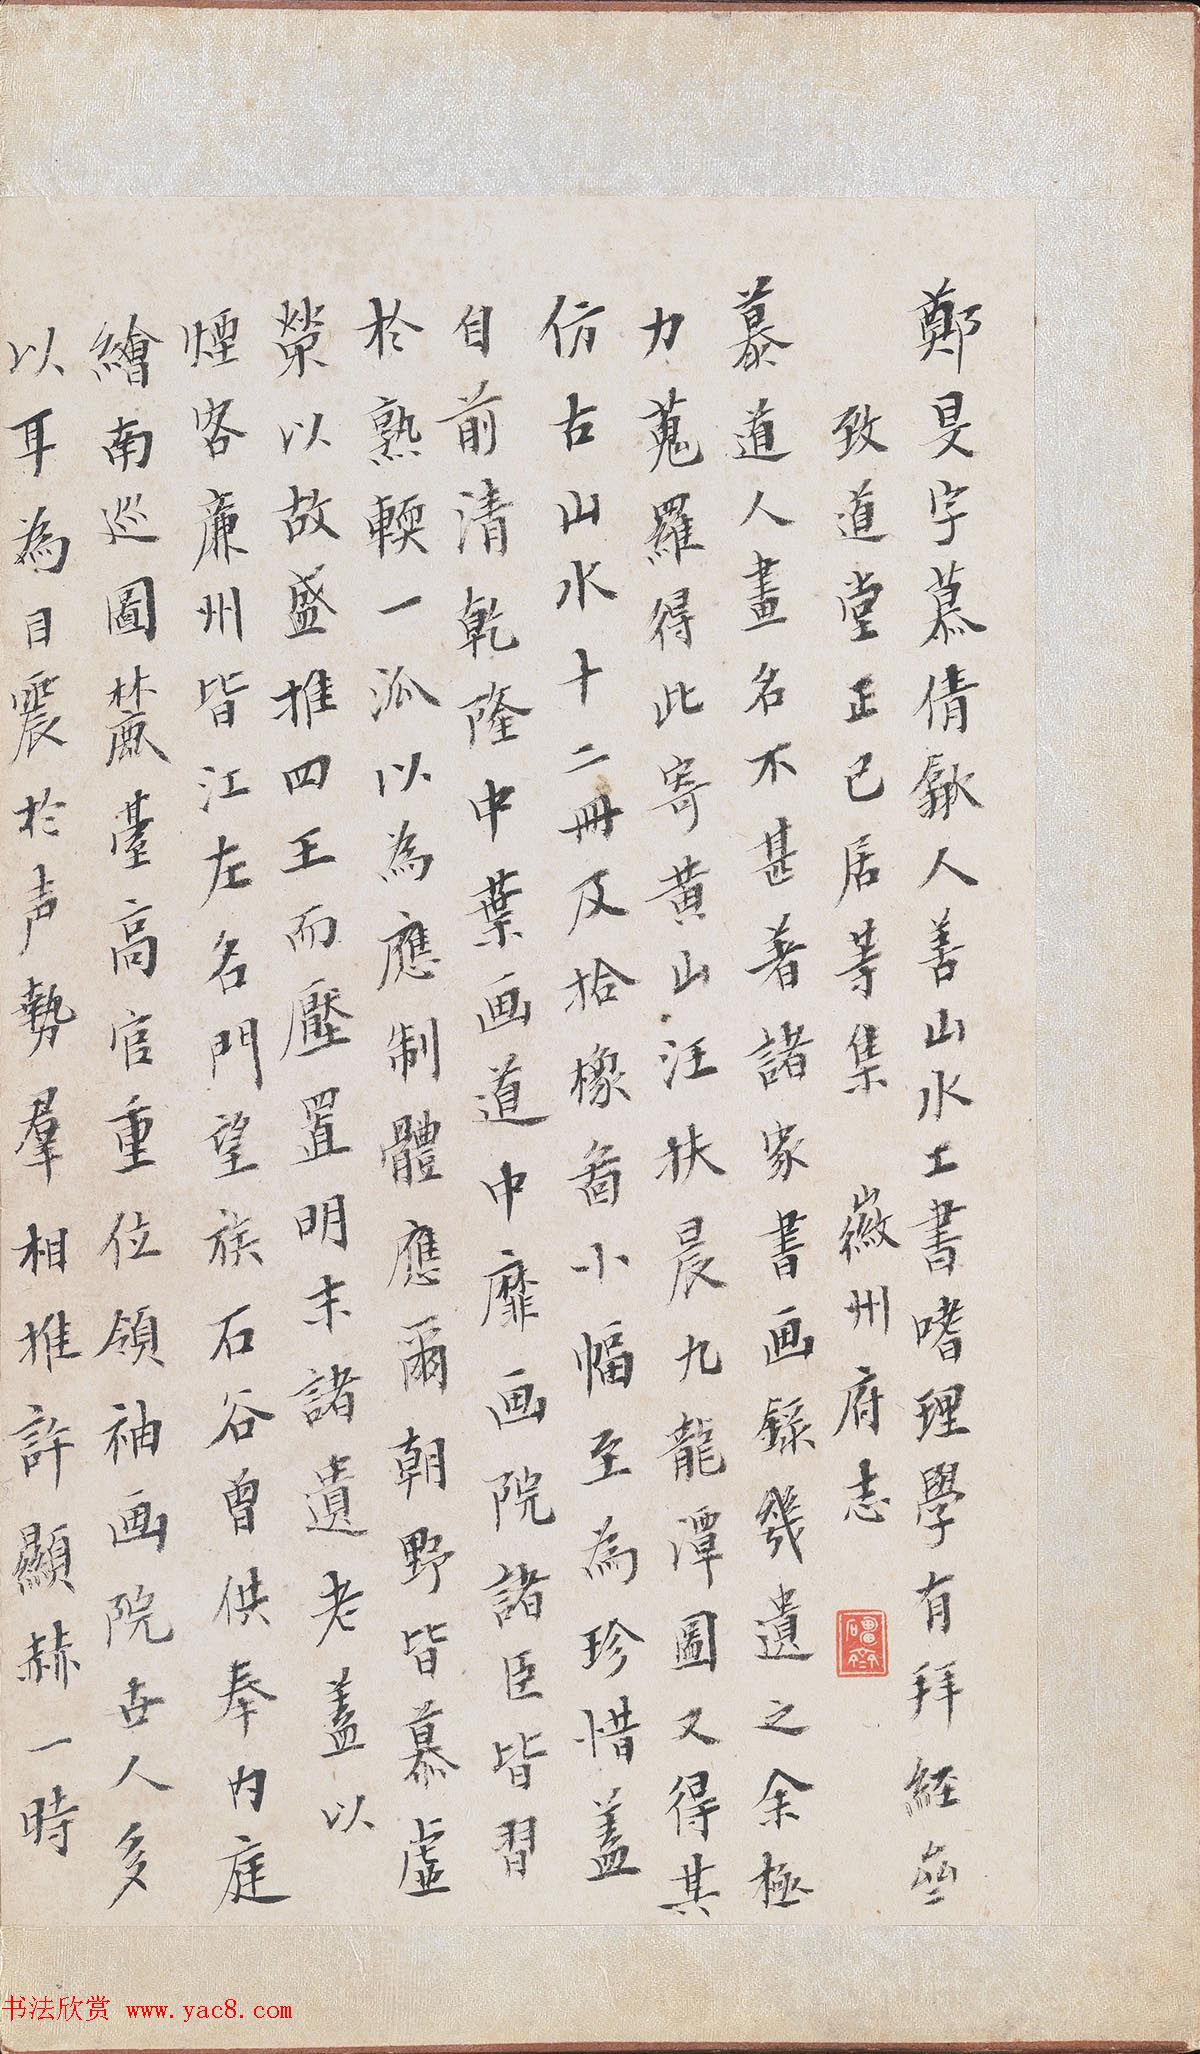 鄭旻字慕倩歙人善山水工書嗜理學有拜經齋
致道堂正己居等集　徽州府志
慕道人畫名不甚著諸家書画錄幾遺之余極
力蒐羅得此寄黄山汪扶晨九龍潭圖又得其
仿古山水十二冊及拾橡圖小幅至為珍惜蓋
自前清乾隆中葉画道中靡画院諸臣皆習
於熟輭一派以為應制體應爾朝野皆慕虛
榮以故盛推四王而壓置明末諸遺老蓋以
煙客廉州皆江左名門望族石谷曾供奉內庭
繪南巡圖麓臺高官重位領袖画院古人多
以耳為目震於声勢羣相推許顯赫一時
书法欣赏 www.yac8.com